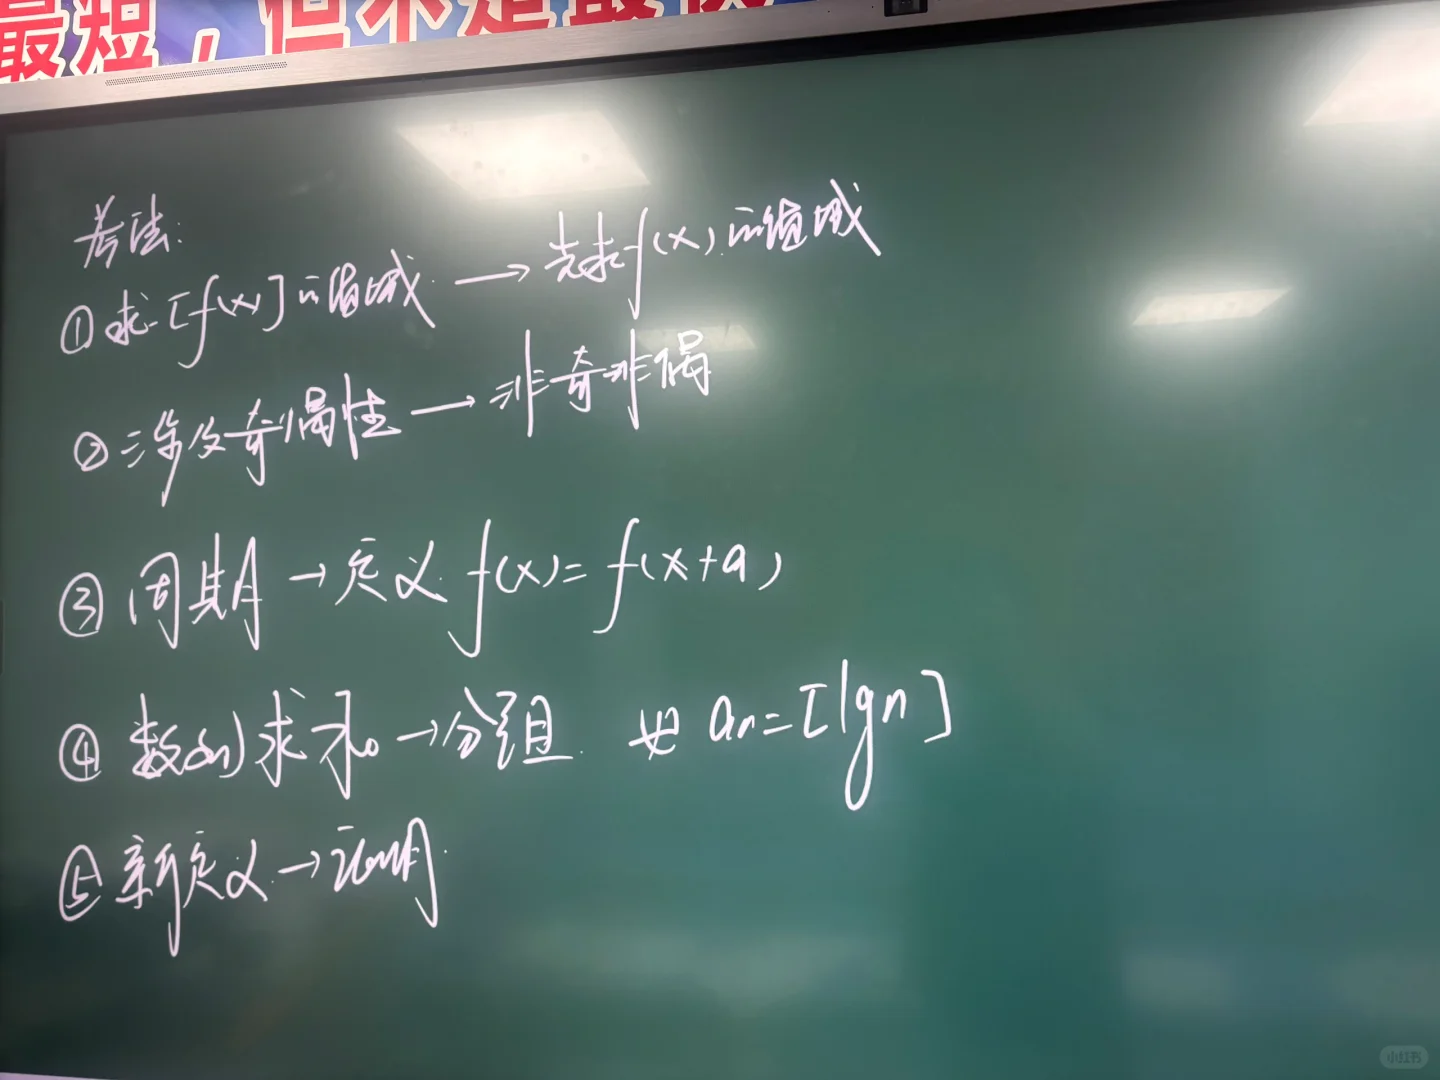 最短，但不是最快
考法:
①求[f(x)]的值域 → 先求f(x)的值域
②涉及奇偶性 → 非奇非偶
③周期 → 定义 f(x)=f(x+a)
④数列求和 → 分组. 如 an=[lgn]
⑤新定义 → 证明.
小红书